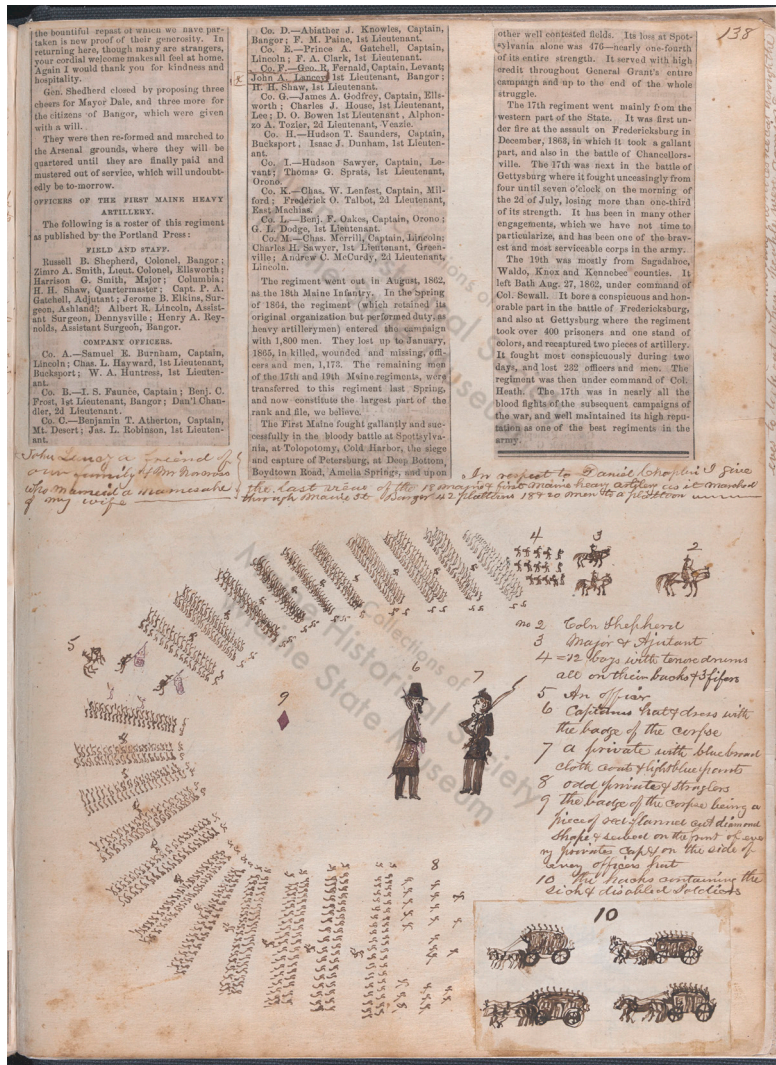 138
the bountiful repast of which we have par-
taken is new proof of their generosity. In
returning here, though many are strangers,
your cordial welcome makes all feel at home.
Again I would thank you for kindness and
hospitality.
Gen. Shedherd closed by proposing three
cheers for Mayor Dale, and three more for
the citizens of Bangor, which were given
with a will.
They were then re-formed and marched to
the Arsenal grounds, where they will be
quartered until they are finally paid and
mustered out of service, which will undoubt-
edly be to-morrow.
OFFICERS OF THE FIRST MAINE HEAVY
ARTILLERY.
The following is a roster of this regiment
as published by the Portland Press:
FIELD AND STAFF.
Russell B. Shepherd, Colonel, Bangor;
Zimro A. Smith, Lieut. Colonel, Ellsworth;
Harrison G. Smith, Major; Columbia;
H. H. Shaw, Quartermaster; Capt. P. A.
Gatchell, Adjutant; Jerome B. Elkins, Sur-
geon, Ashland; Albert R. Lincoln, Assist-
ant Surgeon, Dennysville; Henry A. Rey-
nolds, Assistant Surgeon, Bangor.
COMPANY OFFICERS.
Co. A.—Samuel E. Burnham, Captain,
Lincoln; Chas. L. Hayward, 1st Lieutenant,
Bucksport; W. A. Huntress, 1st Lieuten-
ant.
Co. B.—I. S. Faunce, Captain; Benj. C.
Frost, 1st Lieutenant, Bangor; Dan'l Chan-
dler, 2d Lieutenant.
Co. C.—Benjamin T. Atherton, Captain,
Mt. Desert; Jas. L. Robinson, 1st Lieuten-
ant.
Co. D.—Abiather J. Knowles, Captain,
Bangor; F. M. Paine, 1st Lieutenant.
Co. E.—Prince A. Gatchell, Captain,
Lincoln; F. A. Clark, 1st Lieutenant.
Co. F.—Geo. R. Fernald, Captain, Levant;
John A. Lancey, 1st Lieutenant, Bangor;
H. H. Shaw, 1st Lieutenant.
Co. G.—James A. Godfrey, Captain, Ells-
worth; Charles J. House, 1st Lieutenant,
Lee; D. O. Bowen 1st Lieutenant, Alphon-
zo A. Tozier, 2d Lieutenant, Veazie.
Co. H.—Hudson T. Saunders, Captain,
Bucksport. Isaac J. Dunham, 1st Lieuten-
ant.
Co. I.—Hudson Sawyer, Captain, Le-
vant; Thomas G. Sprats, 1st Lieutenant,
Orono.
Co. K.—Chas. W. Lenfest, Captain, Mil-
ford; Frederick O. Talbot, 2d Lieutenant,
East Machias.
Co. L.—Benj. F. Oakes, Captain, Orono;
G. L. Dodge, 1st Lieutenant.
Co. M.—Chas. Merrill, Captain, Lincoln;
Charles H. Sawyer, 1st Lieutenant, Green-
ville; Andrew C. McCurdy, 2d Lieutenant,
Lincoln.
The regiment went out in August, 1862,
as the 18th Maine Infantry. In the Spring
of 1864, the regiment (which retained its
original organization but performed duty, as
heavy artillerymen) entered the campaign
with 1,800 men. They lost up to January,
1865, in killed, wounded and missing, offi-
cers and men, 1,173. The remaining men
of the 17th and 19th Maine regiments, were
transferred to this regiment last Spring,
and now constitute the largest part of the
rank and file, we believe.
The First Maine fought gallantly and suc-
cessfully in the bloody battle at Spottsylva-
nia, at Tolopotomy, Cold Harbor, the siege
and capture of Petersburg, at Deep Bottom,
Boydtown Road, Amelia Springs, and upon
other well contested fields. Its loss at Spot-
sylvania alone was 476—nearly one-fourth
of its entire strength. It served with high
credit throughout General Grant's entire
campaign and up to the end of the whole
struggle.
The 17th regiment went mainly from the
western part of the State. It was first un-
der fire at the assault on Fredericksburg in
December, 1863, in which it took a gallant
part, and also in the battle of Chancellors-
ville. The 17th was next in the battle of
Gettysburg where it fought unceasingly from
four until seven o'clock on the morning of
the 2d of July, losing more than one-third
of its strength. It has been in many other
engagements, which we have not time to
particularize, and has been one of the brav-
est and most serviceable corps in the army.
The 19th was mostly from Sagadahoc,
Waldo, Knox and Kennebec counties. It
left Bath Aug. 27, 1862, under command of
Col. Sewall. It bore a conspicuous and hon-
orable part in the battle of Fredericksburg,
and also at Gettysburg where the regiment
took over 400 prisoners and one stand of
colors, and recaptured two pieces of artillery.
It fought most conspicuously during two
days, and lost 232 officers and men. The
regiment was then under command of Col.
Heath. The 17th was in nearly all the
blood fights of the subsequent campaigns of
the war, and well maintained its high repu-
tation as one of the best regiments in the
army.
John Lancy a friend of
our family & Mr Norman
who married a namesake
of my wife
In respect to Daniel Choplin I give
the last view of the 18 maine & first maine heavy artilery as it marched
through Maine St. Bangor 42 plattuns 18 & 20 men to a plattoon
4 3 2
5
6 7
9
8
10
no 2 Coln Shepherd
3 Major & Ajutant
4 = 12 boys with tenor drums
all on their backs & 3 fifers
5 An officer
6 Capitanns hat & dress with
the badge of the corpse
7 a private with blue broad
cloth coat & light blue pants
8 odd privates & straglers
9 the badge of the corpse being a
piece of red flannel cut diamond
shape & sewed on the frunt of eve
ry privates cap & on the side of
every officers hat
10 the hacks containing the
sick & disabled soldiers
Collections of
Maine Historical Society
Maine State Museum